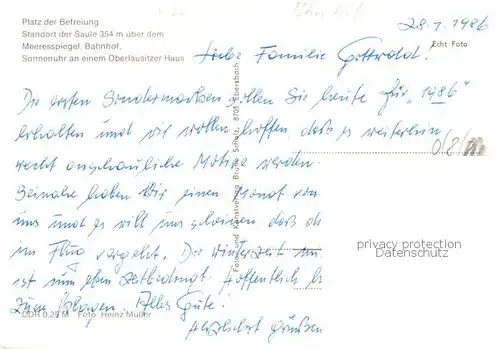 Platz der Befreiung
Standort der Säule 354 m über dem
Meeresspiegel, Bahnhof,
Sonnenuhr an einem Oberlausitzer Haus
28.1.1986
Echt Foto
Liebe Familie Gottwald!
Die ersten Sondermarken sollen Sie heute für "1986"
erhalten und wir wollen hoffen, dass es weiterhin
recht anschauliche Motive werden.
Beinahe haben wir einen Monat von
uns und es will uns scheinen dass
im Flug vergeht. Die Winterzeit
ist nun eben zeitbedingt. Hoffentlich
zum Klagen. Alles Gute!
Herzlichst grüßen
DDR 0,25 M Foto: Heinz Müller
Foto- und Kunstverlag Bruno Scholz, 8705 Ebersbach
privacy protection
Datenschutz